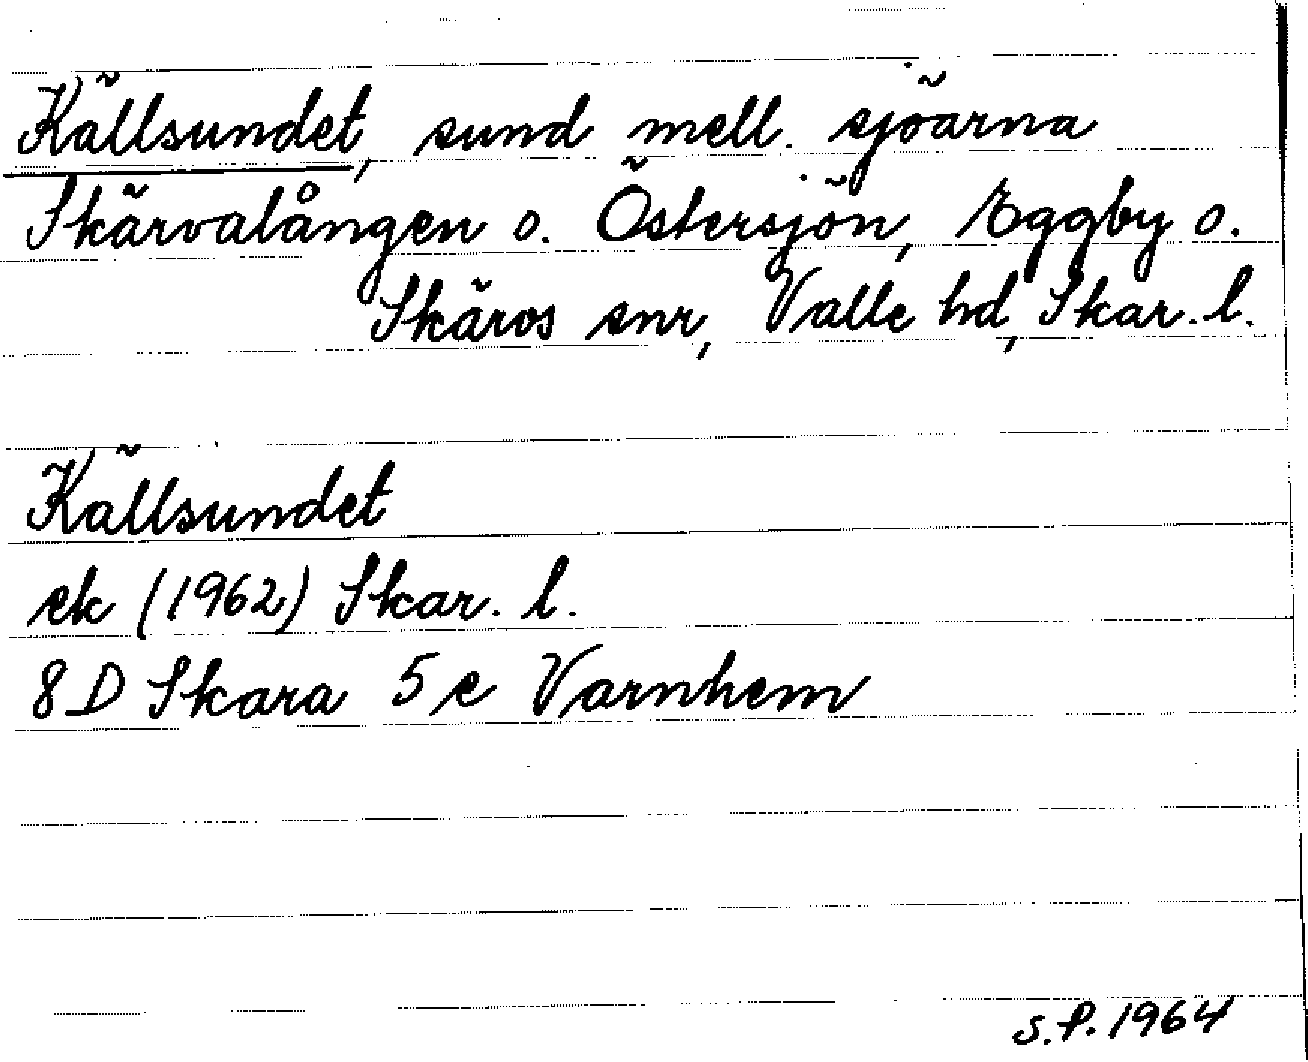 Källsundet, sund mell. sjöarna
Skärvalången o. Östersjön, Eggby o.
Skärvs snr, Valle hd, Skar. l.
Källsundet
ek (1962) Skar. l.
8D Skara 5e Varnhem
S.P. 1964